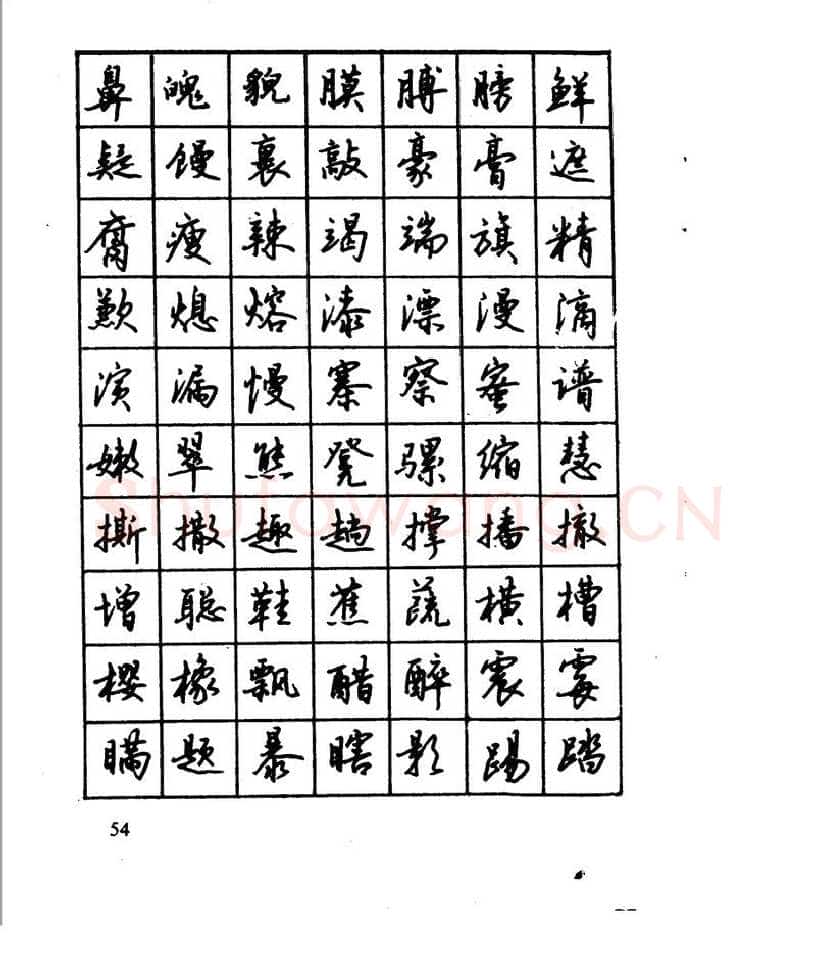 鼻 魄 貌 膜 膊 膀 鲜
疑 馒 裹 敲 豪 膏 遮
腐 瘦 辣 竭 端 旗 精
歉 熄 熔 漆 漂 漫 滴
演 漏 慢 寨 察 蜜 谱
嫩 翠 熊 凳 骡 缩 慧
撕 撒 趣 趟 撑 播 撤
增 聪 鞋 蕉 蔬 横 槽
樱 橡 飘 醋 醉 震 霉
瞒 题 暴 瞎 影 踢 踏
54
shufawang.CN